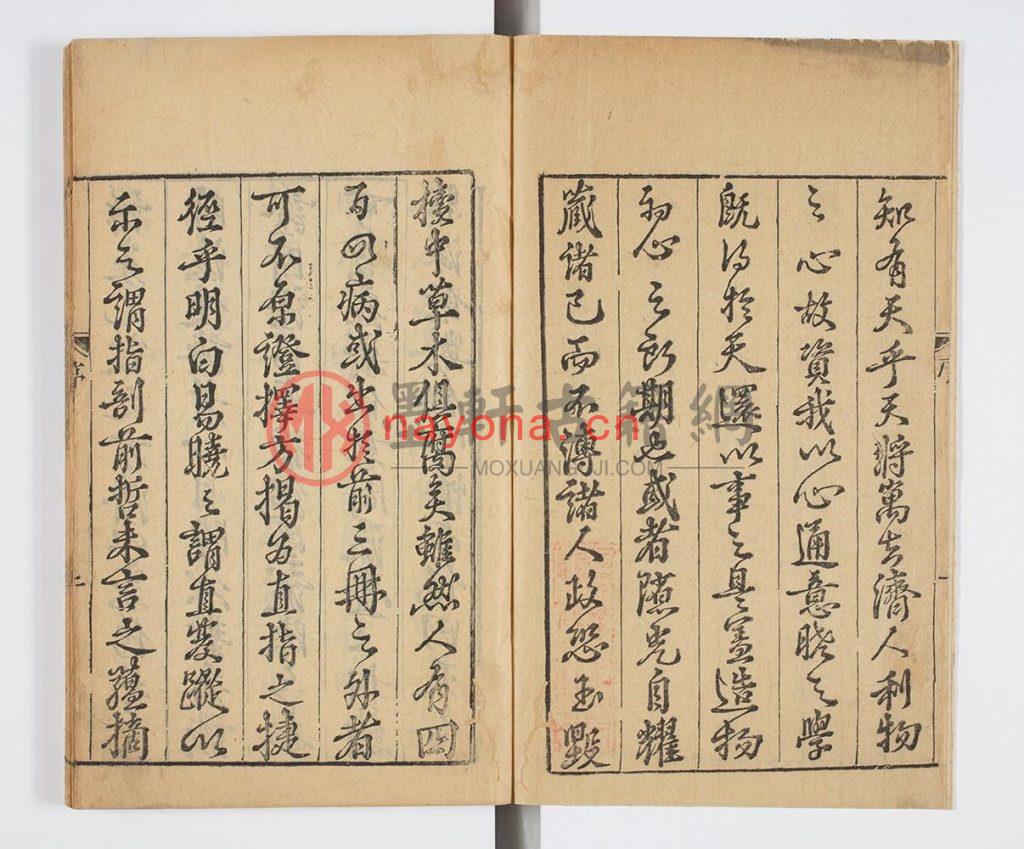 知有天乎天將寓吾濟人利物
之心故資我以心通意曉之學
既得於天還以事之是蓋造物
初心之所期也或者隱光自耀
藏諸己而不傳諸人政恐玉毀
櫝中草木俱腐矣雖然人有四
百四病或出於前三冊之外者
可不原證擇方揭為直指之捷
徑乎明白易曉之謂直發蹤以
示之謂指剖前哲未言之蘊摘
序
二
墨軒古籍網
nayona.cn
MOXUANGUJI.COM